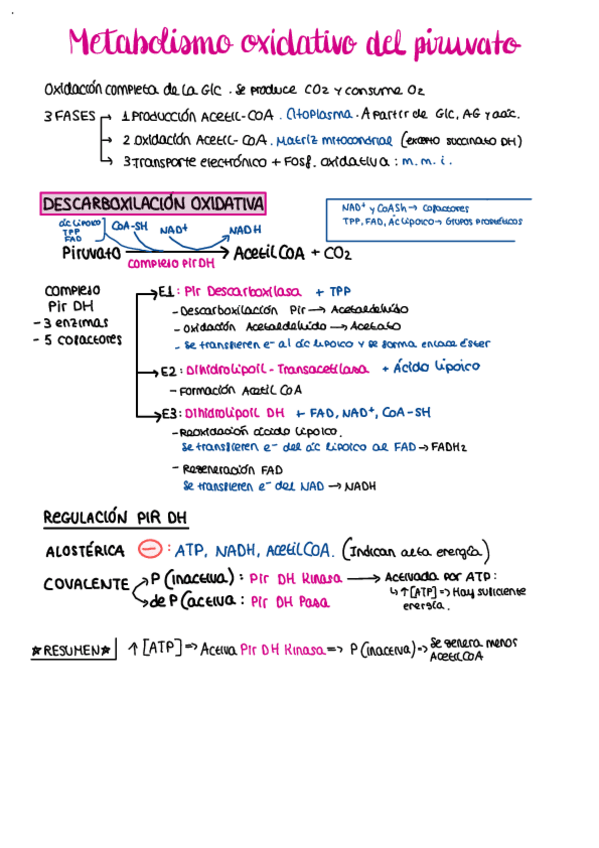 Metabolismo oxidativo del piruvato
Oxidación completa de la Glc . Se produce CO2 y consume O2
3 FASES → 1 Producción Acetil-COA . Citoplasma . A partir de Glc, AG y aac.
→ 2 Oxidación Acetil-COA . Matriz mitocondrial (excepto succinato DH)
→ 3 Transporte electrónico + Fosf. oxidativa : m.m.i.
DESCARBOXILACIÓN OXIDATIVA
NAD+ y CoASH → Cofactores
TPP, FAD, Ác Lipoico → Grupos prostéticos
ác Lipoico
TPP
FAD
COA-SH
NAD+
NADH
Piruvato → Acetil COA + CO2
Complejo Pir DH
Complejo
Pir DH
- 3 enzimas
- 5 cofactores
E1 : Pir Descarboxilasa + TPP
- Descarboxilación Pir → Acetaldehído
- Oxidación Acetaldehído → Acetato
- Se transfieren e- al ác lipoico y se forma enlace éster
E2 : Dihidrolipoil - Transacetilasa + Ácido lipoico
- Formación Acetil COA
E3 : Dihidrolipoil DH + FAD, NAD+, COA-SH
- Reoxidación ácido lipoico.
Se transfieren e- del ác lipoico al FAD → FADH2
- Regeneración FAD
Se transfieren e- del NAD → NADH
REGULACIÓN PIR DH
ALOSTÉRICA - : ATP, NADH, Acetil COA. (Indican alta energía)
COVALENTE → P (inactiva) : Pir DH Kinasa → Activada por ATP :
↳ ↑[ATP] => Hay suficiente
energía.
→ de P (activa : Pir DH Pasa
★RESUMEN★ ↑ [ATP] => Activa Pir DH Kinasa => P (inactiva) => Se genera menos
Acetil COA